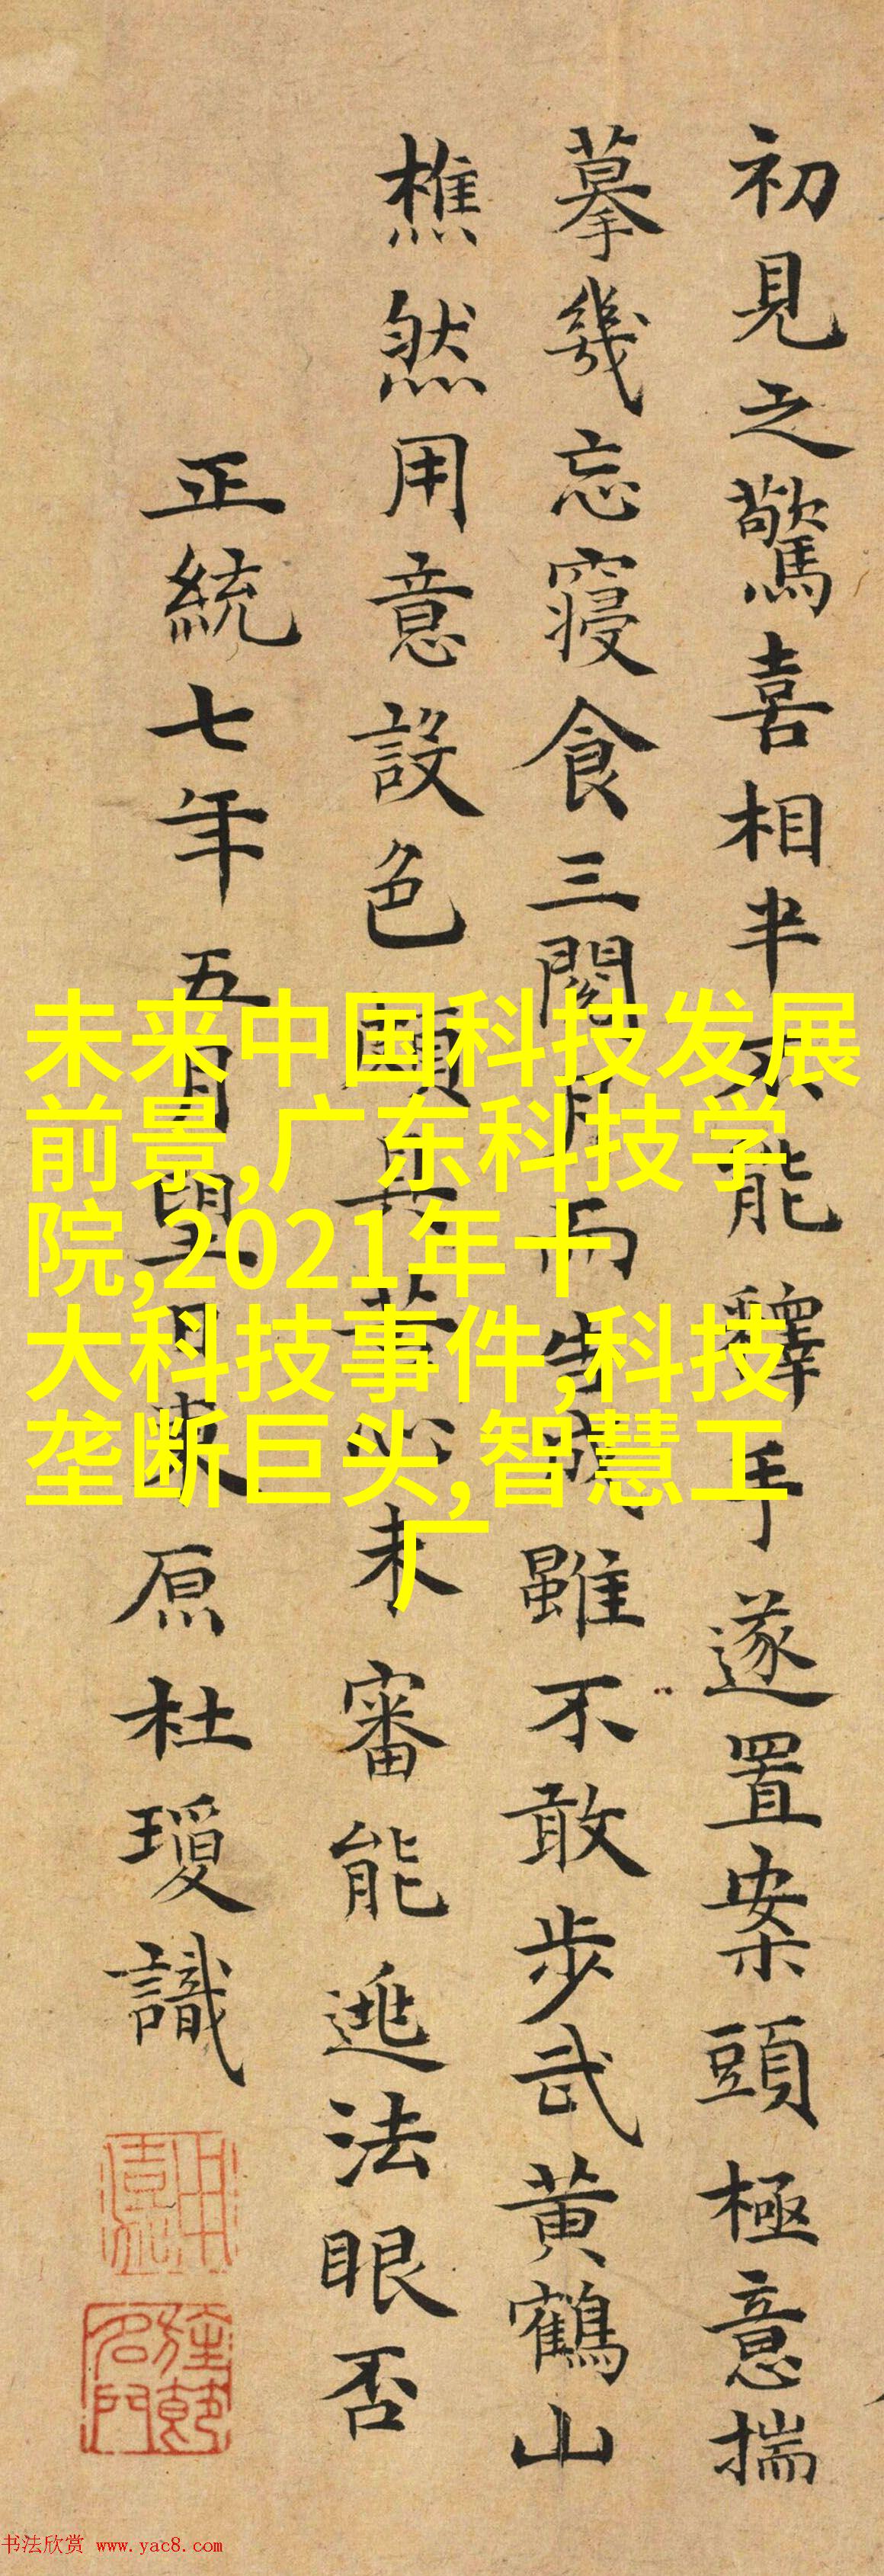 初見之驚喜相半不能釋手遂置案頭極意揣
摹幾忘寢食三閱月而告成雖不敢步武黃鶴山
樵然用意設色頗具苦心未審能逃法眼否
正統七年五月望日東原杜瓊識
未来中国科技发展
前景,广东科技学
院,2021年十
大科技事件,科技
垄断巨头,智慧工
厂
书法欣赏 www.yac8.com